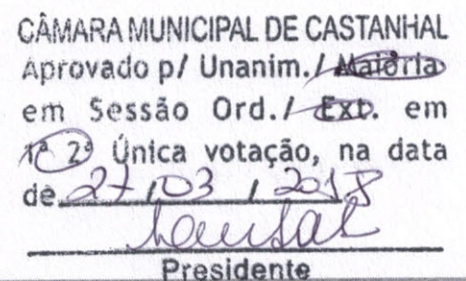 CÂMARA MUNICIPAL DE CASTANHAL
Aprovado p/ Unanim./ Maioria
em Sessão Ord./ Ext. em
1ª 2ª Única votação, na data
de 27/03/2018
Presidente